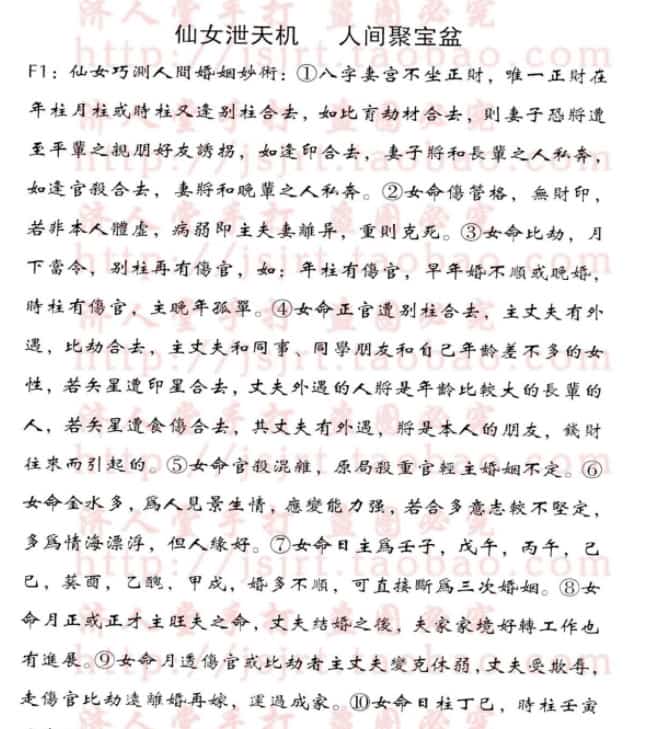 仙女泄天机 人间聚宝盆
F1：仙女巧測人間婚姻妙術：①八字妻宮不坐正財，唯一正財在
年柱月柱或時柱又逢别柱合去，如比肓劫材合去，則妻子恐將遭
至平輩之親朋好友誘拐，如逢印合去，妻子將和長輩之人私奔，
如逢官殺合去，妻將和晚輩之人私奔。②女命傷管格，無財印，
若非本人體虚，病弱即主夫妻離异，重則克死。③女命比劫，月
下當令，别柱再有傷官，如：年柱有傷官，早年婚不順或晚婚，
時柱有傷官，主晚年孤單。④女命正官遭别柱合去，主丈夫有外
遇，比劫合去，主丈夫和同事、同學朋友和自己年齡差不多的女
性，若矢星遭印星合去，丈夫外遇的人將是年齡比較大的長輩的
人，若矢星遭食傷合去，其丈夫有外遇，將是本人的朋友，錢財
往來而引起的。⑤女命官殺混雜，原局殺重官輕主婚姻不定。⑥
女命金水多，爲人見景生情，應變能力强，若合多意志較不堅定，
多爲情海漂浮，但人緣好。⑦女命日主爲壬子，戊午，丙午，己
巳，葵酉，乙醜，甲戍，婚多不順，可直接斷爲三次婚姻。⑧女
命月正或正才主旺夫之命，丈夫結婚之後，夫家家境好轉工作也
有進展。⑨女命月透傷官或比劫者主丈夫變克休弱，丈夫受欺辱，
走傷官比劫遠離婚再嫁，運過成家。⑩女命日柱丁巳，時柱壬寅
济人堂手打 盗圖必究
http://jsjrt.taobao.com